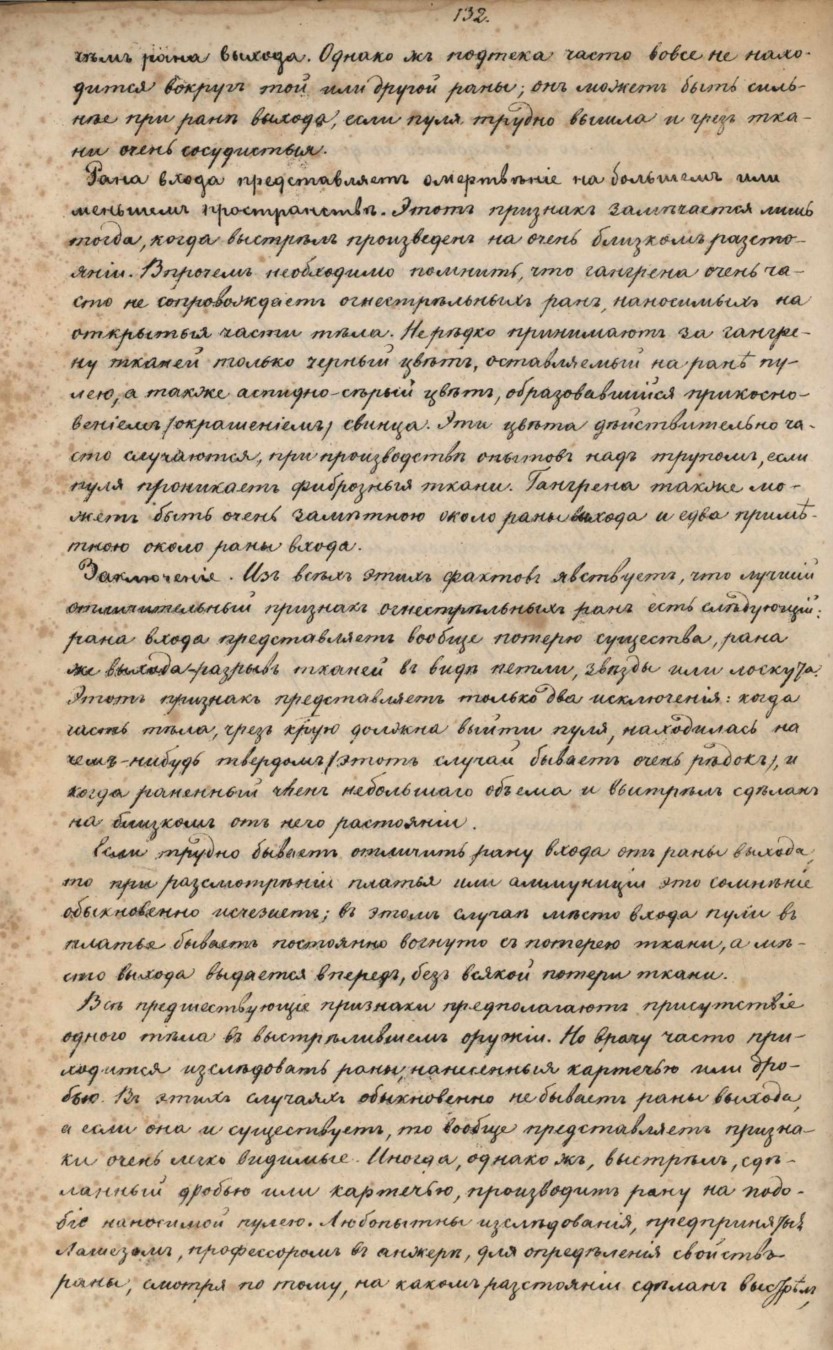 132.
чѣмъ рана выхода. Однако жъ подтека часто вовсе не нахо-
дится вокругъ той или другой раны; онъ можетъ быть силь-
нѣе при ранѣ выхода, если пуля трудно вышла и чрезъ тка-
ни очень сосудистыя.
Рана входа представляетъ омертвѣніе на большемъ или
меньшемъ пространствѣ. Этотъ признакъ замѣчается лишь
тогда, когда выстрѣлъ произведенъ на очень близкомъ разсто-
яніи. Впрочемъ необходимо помнить, что гангрена очень ча-
сто не сопровождаетъ огнестрѣльныхъ ранъ, наносимыхъ на
открытыя части тѣла. Нерѣдко принимаютъ за гангре-
ну тканей только черный цвѣтъ, оставляемый на ранѣ пу-
лею, а также аспидно-сѣрый цвѣтъ, образовавшійся прикосно-
веніемъ (окрашеніемъ) свинца. Эти цвѣта дѣйствительно ча-
сто случаются, при производствѣ опытовъ надъ трупомъ, если
пуля проникаетъ фиброзныя ткани. Гангрена также мо-
жетъ быть очень замѣтною около раны выхода и едва примѣ-
тною около раны входа.
Заключеніе. Изъ всѣхъ этихъ фактовъ явствуетъ, что лучшій
отличительный признакъ огнестрѣльныхъ ранъ есть слѣдующій:
рана входа представляетъ вообще потерю существа, рана
же выхода - разрывъ тканей въ видѣ петли, звѣзды или лоскута.
Этотъ признакъ представляетъ только два исключенія: когда
часть тѣла, чрезъ крую должна выйти пуля, находилась на
чемъ-нибудь твердомъ (этотъ случай бываетъ очень рѣдокъ), и
когда раненный членъ небольшаго объема и выстрѣлъ сдѣланъ
на близкомъ отъ него растояніи.
Если трудно бываетъ отличить рану входа отъ раны выхода,
то при разсмотрѣніи платья или аммуниціи это сомнѣніе
обыкновенно исчезаетъ; въ этомъ случаѣ мѣсто входа пули въ
платье бываетъ постоянно вогнуто съ потерею ткани, а мѣ-
сто выхода выдается впередъ, безъ всякой потери ткани.
Всѣ предшествующіе признаки предполагаютъ присутствіе
одного тѣла въ выстрѣлившемъ оружіи. Но врачу часто при-
ходится изслѣдовать раны, нанесенныя картечью или дро-
бью. Въ этихъ случаяхъ обыкновенно не бываетъ раны выхода,
а если она и существуетъ, то вообще представляетъ призна-
ки очень легко видимые. Иногда, однако жъ, выстрѣлъ, сдѣ-
ланный дробью или картечью, производитъ рану на подо-
біе наносимой пулею. Любопытны изслѣдованія, предпринятыя
Лашезомъ, профессоромъ въ анжерѣ, для опредѣленія свойствъ
раны, смотря по тому, на какомъ разстояніи сдѣланъ выстрѣлъ,